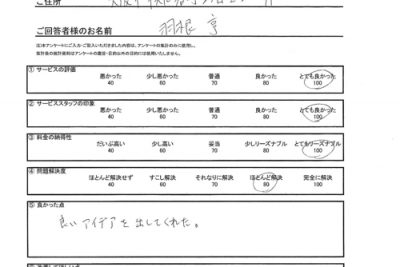 ご住所
ご回答者様のお名前 羽根 亨
①サービスの評価 悪かった 少し悪かった 普通 良かった とても良かった
40 60 70 80 100
②サービススタッフの印象 悪かった 少し悪かった 普通 良かった とても良かった
40 60 70 80 100
③料金の納得性 だいぶ高い 少し高い 妥当 少しリーズナブル とてもリーズナブル
40 60 70 80 100
④問題解決度 ほとんど解決せず すこし解決 それなりに解決 ほとんど解決 完全に解決
40 60 70 80 100
⑤良かった点
良いアイデアを出してくれた。